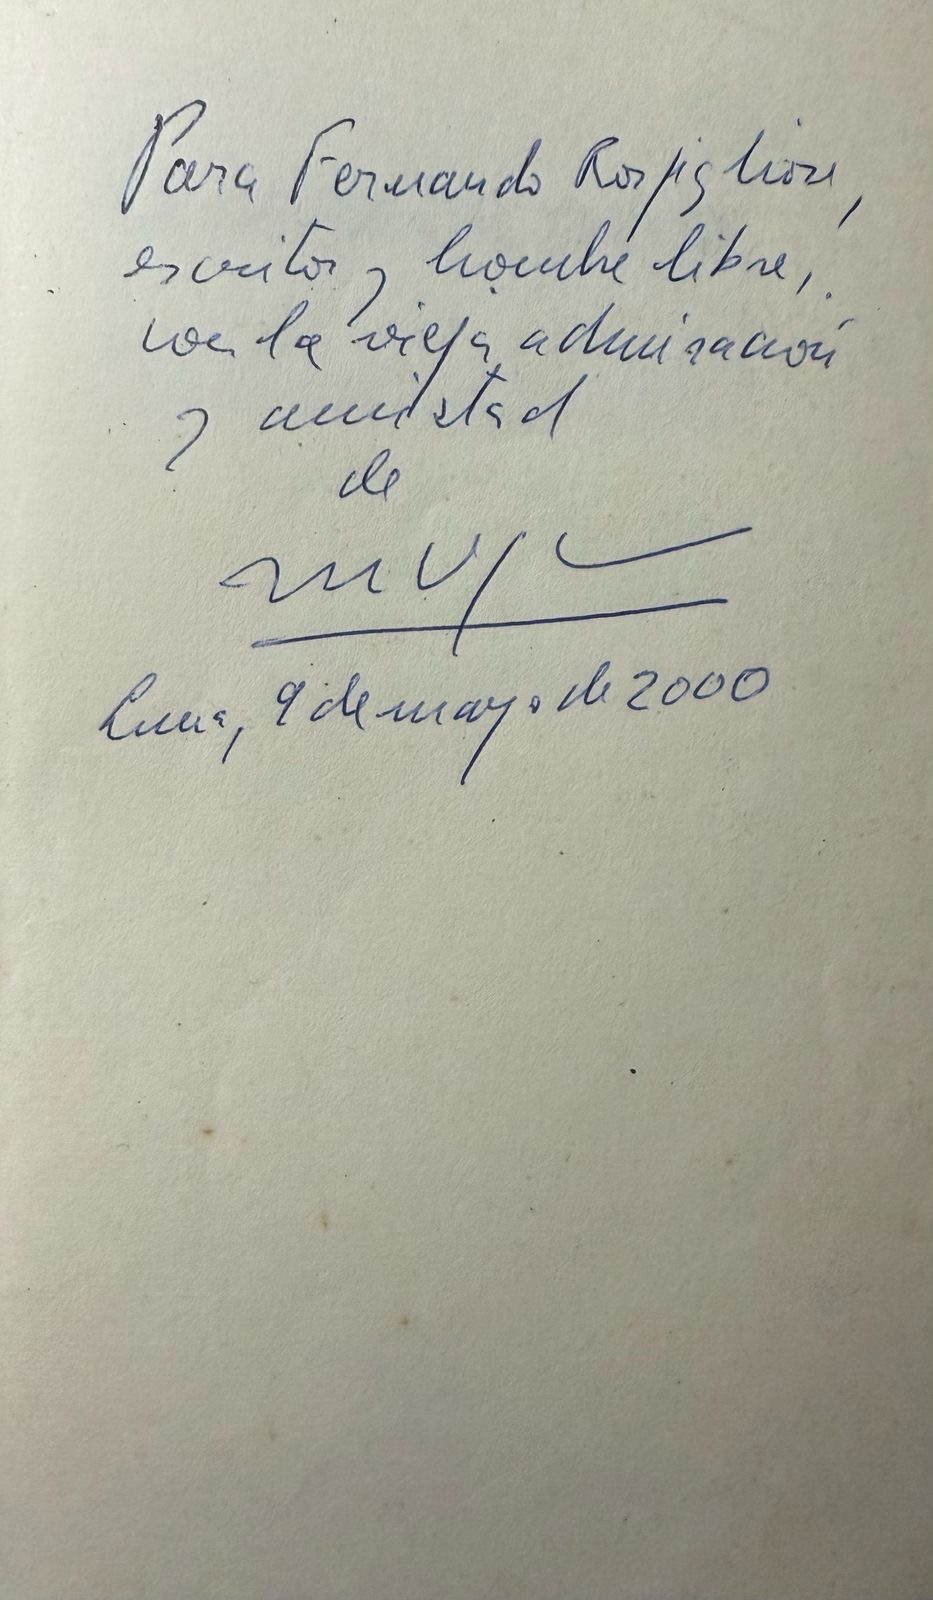 Para Fernando Rospigliosi,
escritor y hombre libre,
con la vieja admiración
y amistad
de
Lima, 9 de mayo de 2000